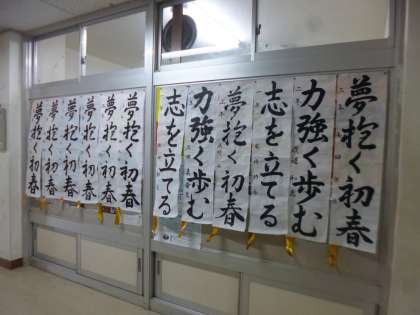 夢抱く初春
力強く歩む
志を立てる
夢抱く初春
力強く歩む
志を立てる
夢抱く初春
夢抱く初春
夢抱く初春
夢抱く初春
夢抱く初春
夢抱く初春